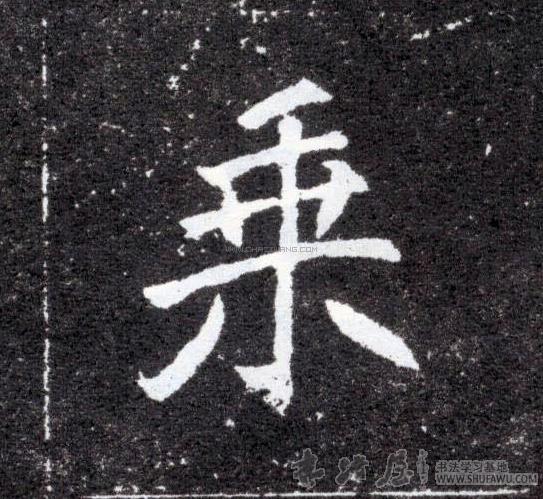 乗
WWW.CHAZIWANG.COM
书法学习基地
WWW.SHUFAWU.COM